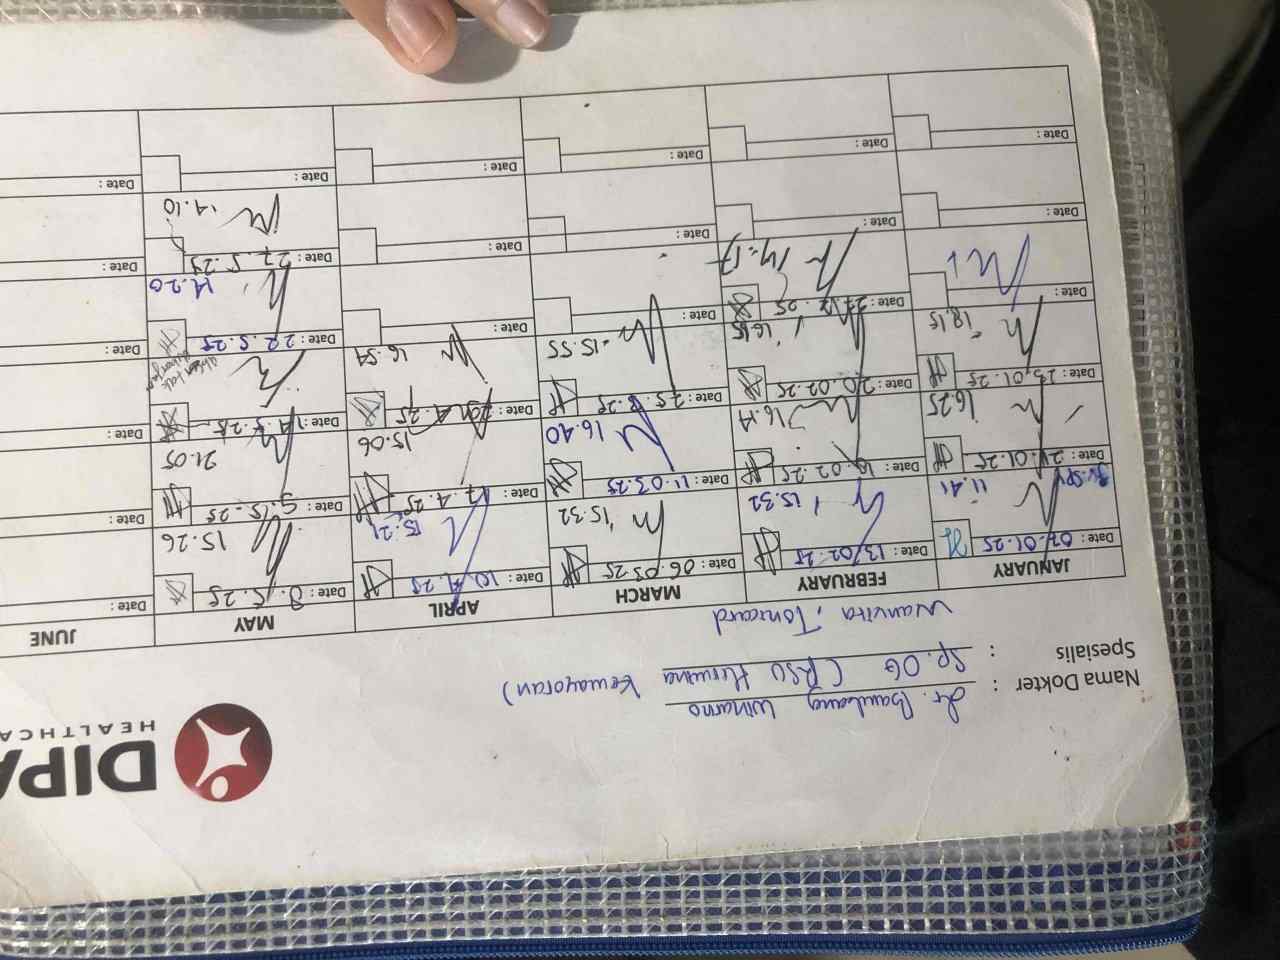 DIPA
HEALTHCA
Nama Dokter : dr. Bambang Winarno
Spesialis : Sp. OG (RSU Hermina Kemayoran)
Wanvita, Tonicard
JANUARY FEBRUARY MARCH APRIL MAY JUNE
Date: 02.01.25 Date: 13/02.25 Date: 06.03.25 Date: 10.4.25 Date: 8.5.25 Date:
11.41 15.32 15.32 15.21 15.26
Date: 21.01.25 Date: Date: 11.03.25 Date: 17.4.25 Date: 9.5.25 Date:
16.25 16.14 16.40 15.06 21.05
Date: 23.01.25 Date: 20.02.25 Date: 25.3.25 Date: Date: Date:
18.15 16.15 15.55 16.54
Date: Date: Date: Date: Date: 22.5.25 Date:
14.17 14.20
Date: Date: Date: Date: Date: Date:
14.10
Date: Date: Date: Date: Date: Date: